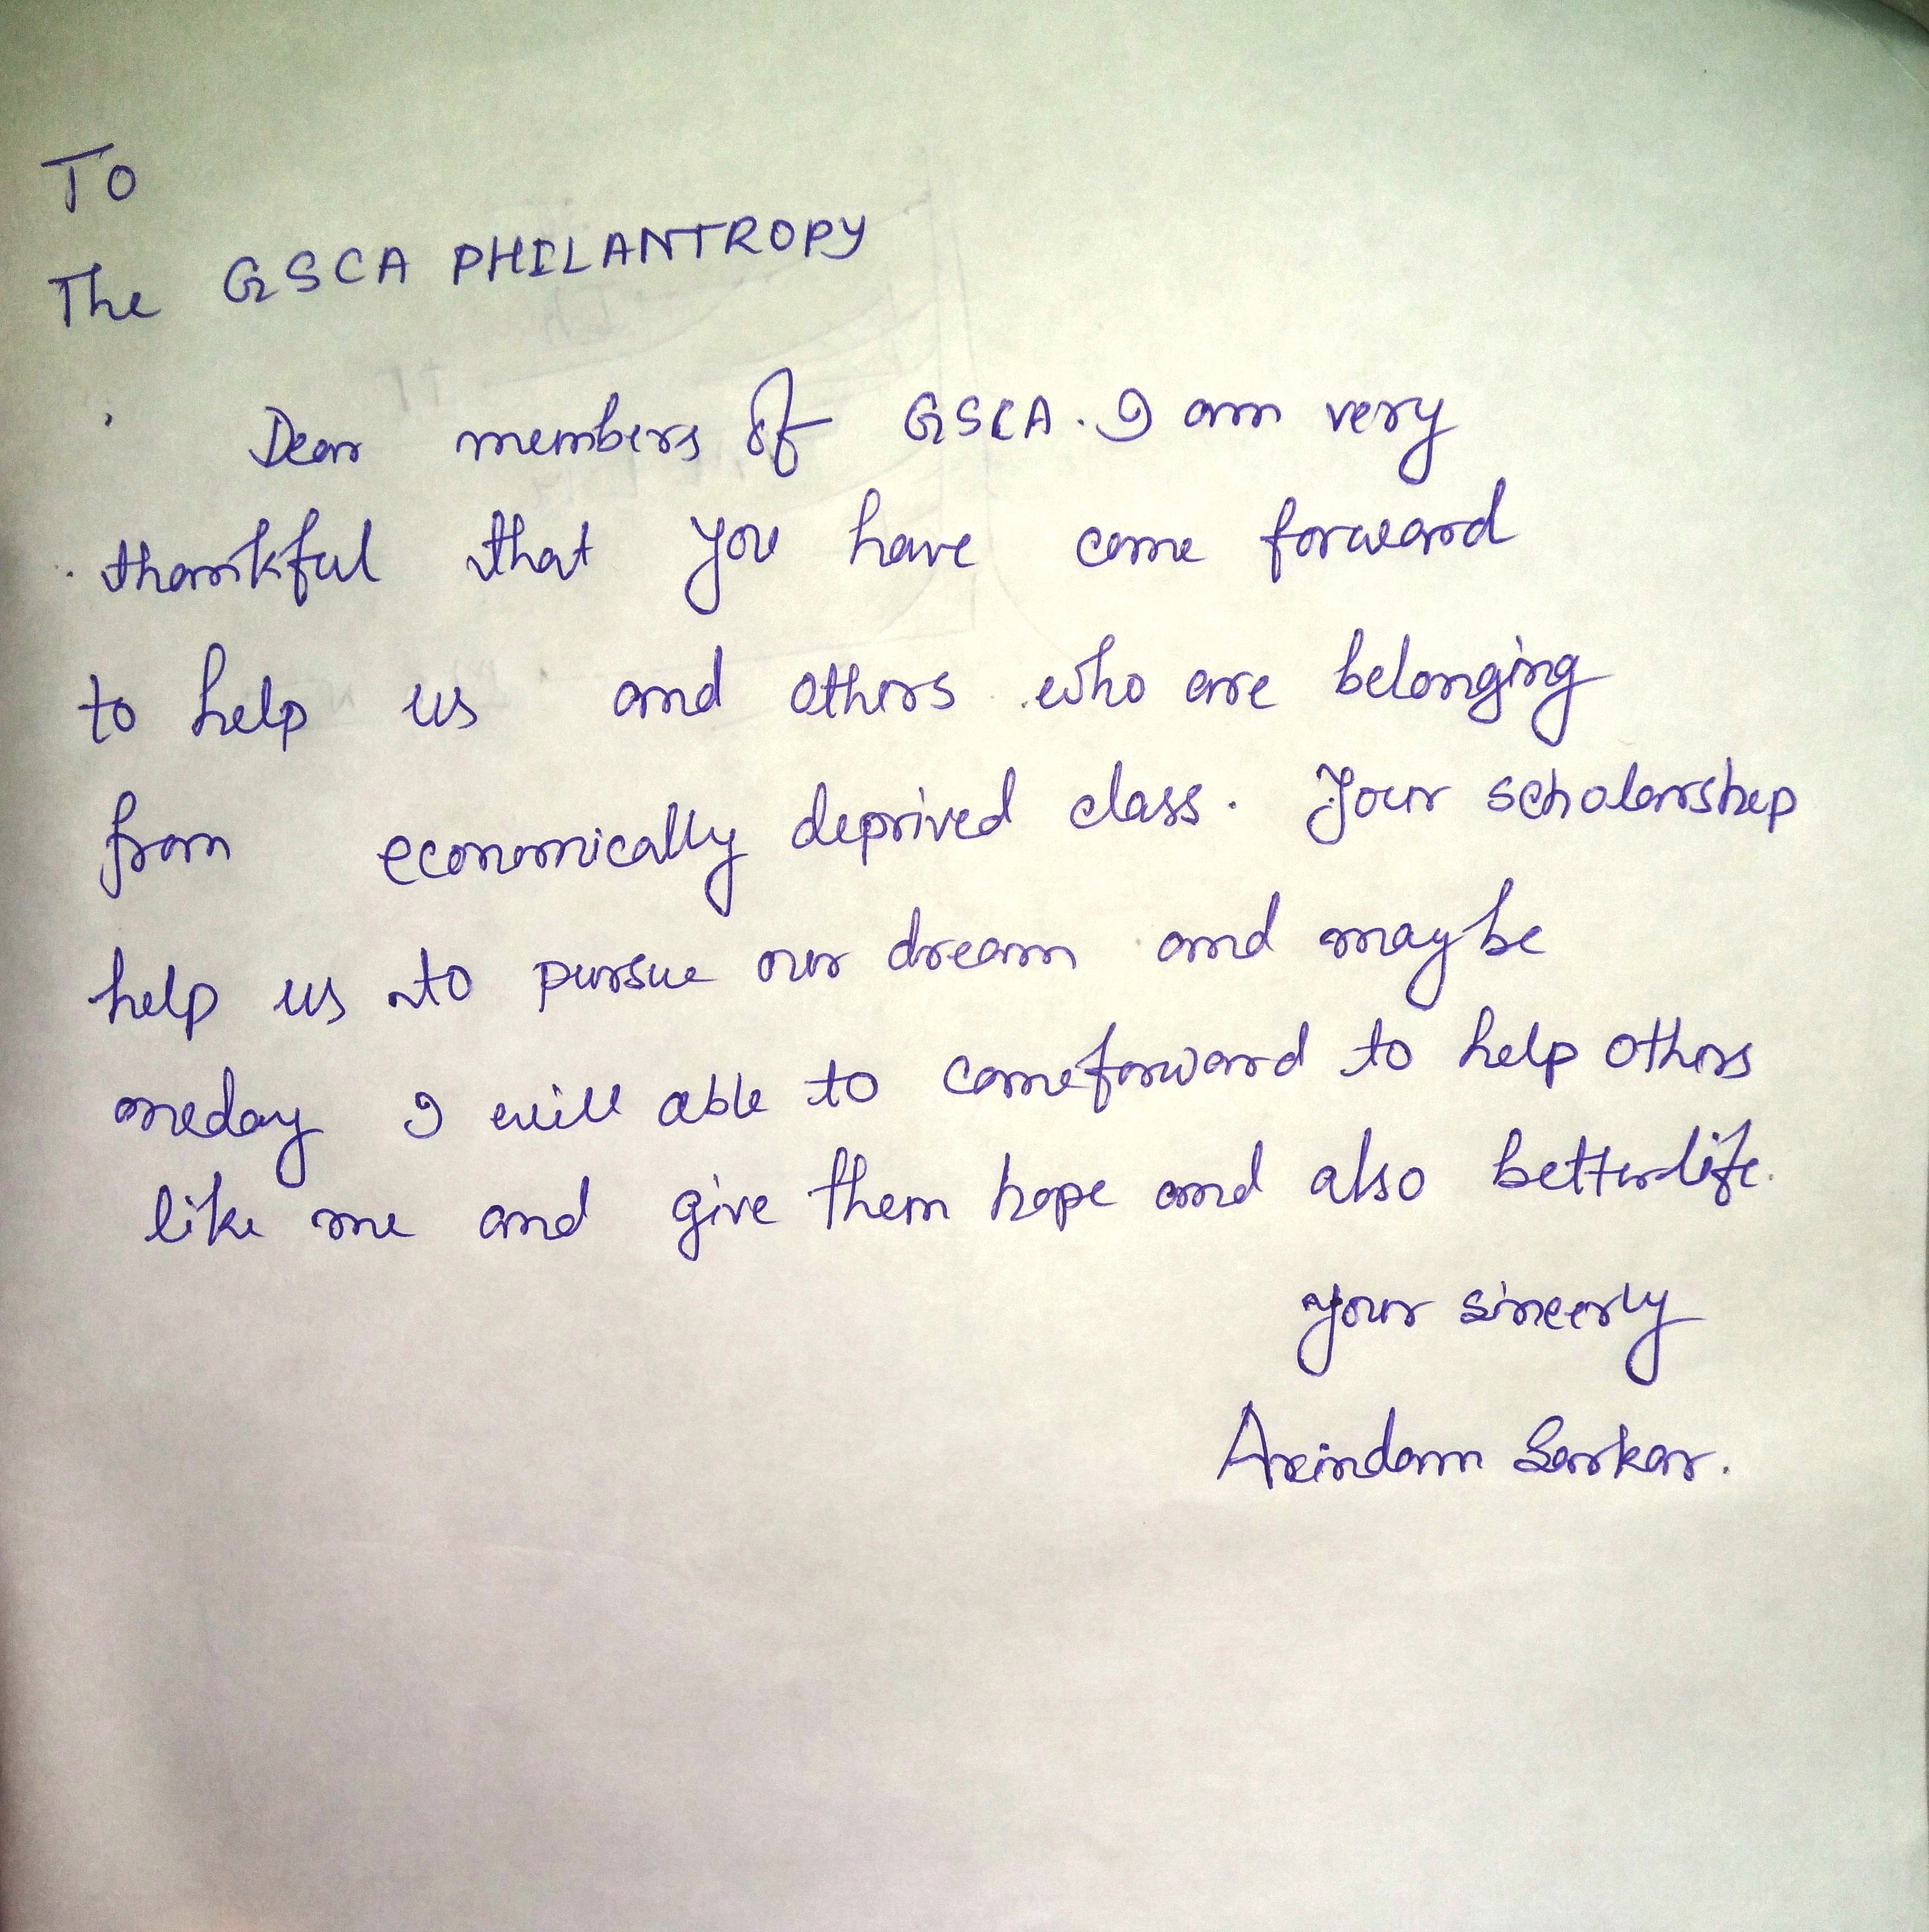 To
The GSCA PHILANTROPY
Dear members of GSCA. I am very
thankful that you have come forward
to help us and others who are belonging
from economically deprived class. Your scholarship
help us to pursue our dream and maybe
oneday I will able to comeforward to help others
like me and give them hope and also betterlife.
your sincerly
Arindam Sarkar.